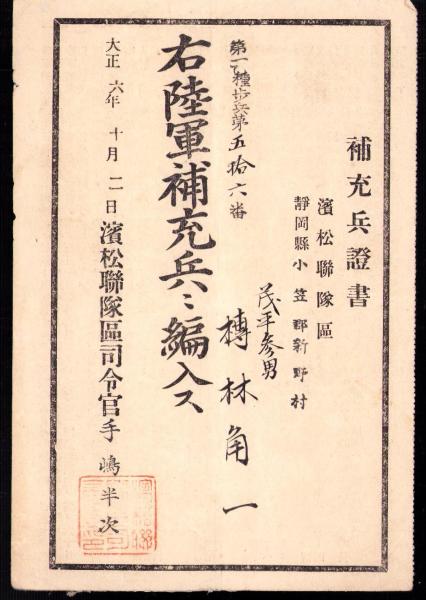 補充兵證書
濱松聯隊區
靜岡縣小笠郡新野村
茂平參男
榑林角一
第一乙種步兵第五拾六番
右陸軍補充兵ニ編入ス
大正六年十月二日
濱松聯隊區司令官手嶋半次